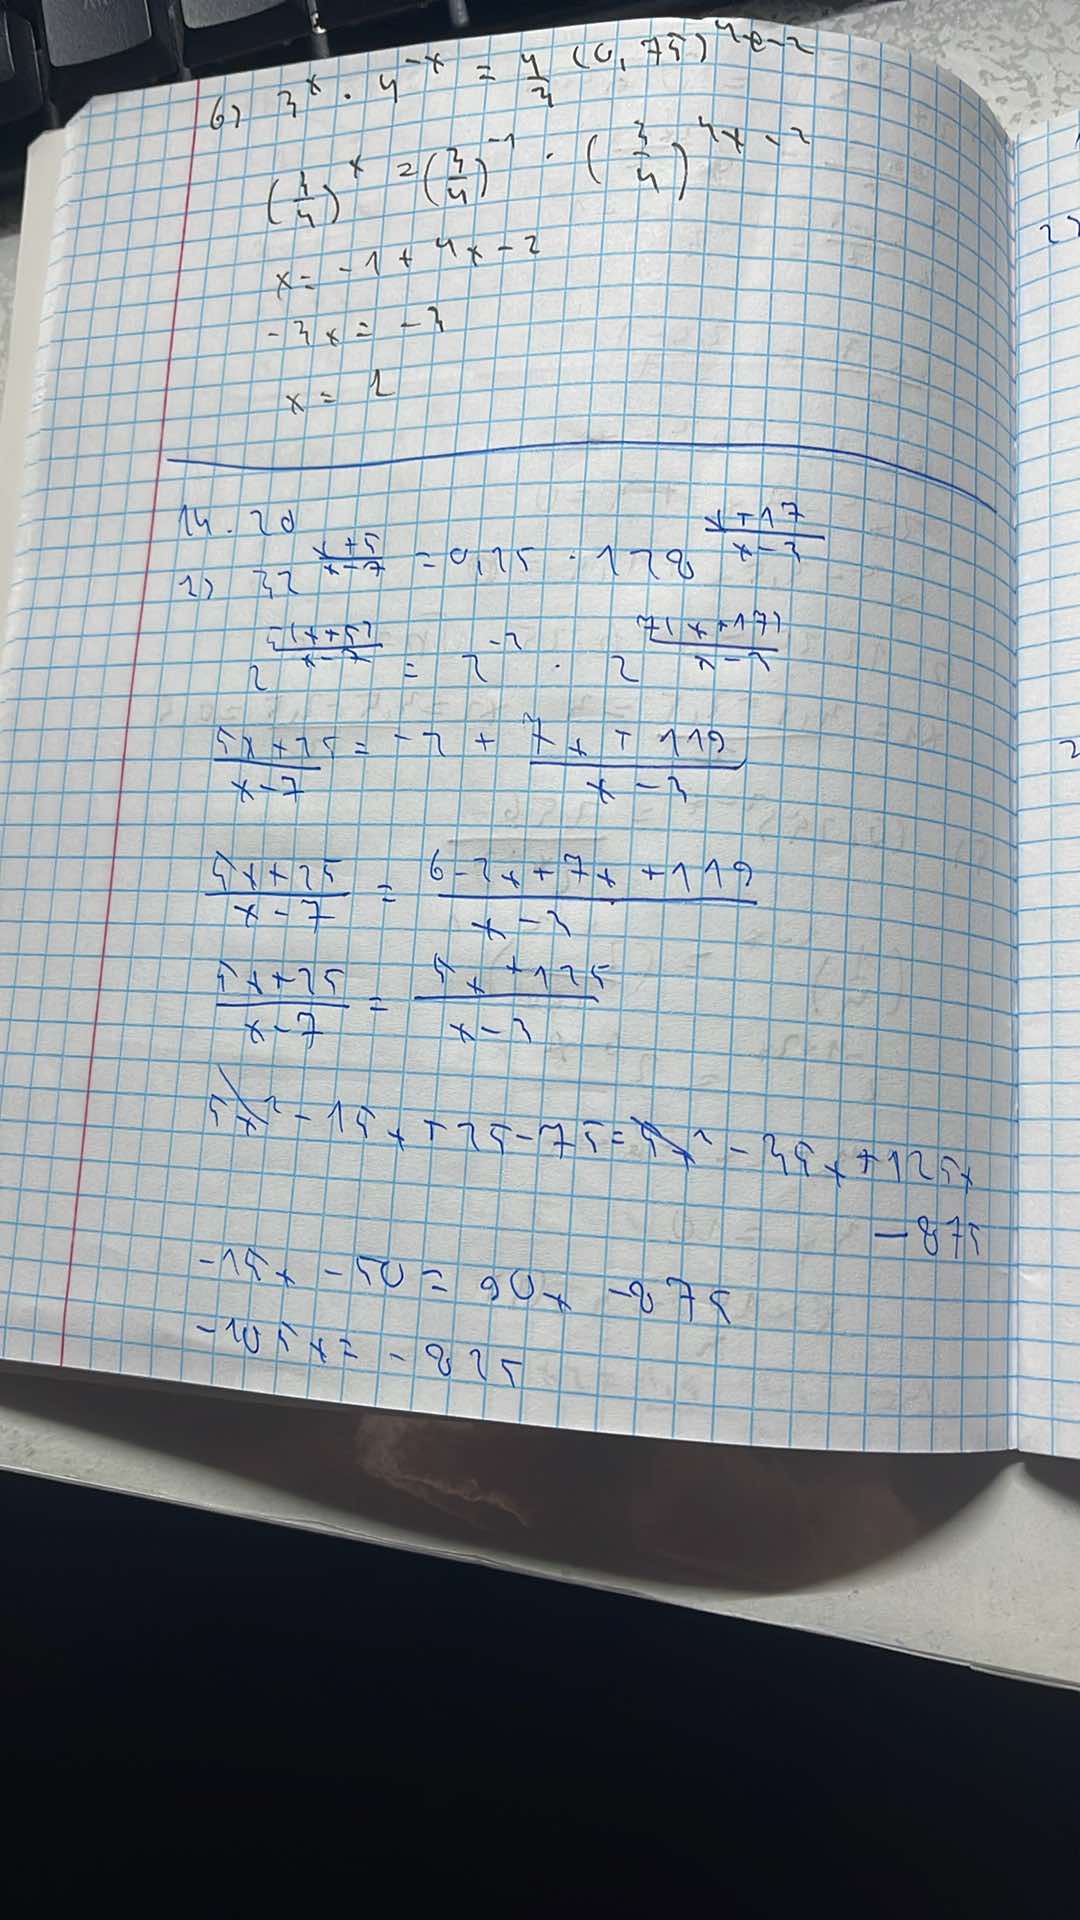 б) 3^x · 4^-x = 4/3 (0,75)^4x-2
(3/4)^x = (3/4)^-1 · (3/4)^4x-2
x = -1 + 4x - 2
-3x = -3
x = 1
14.20
1) 32^(x+5)/(x-7) = 0,25 · 128^(x+17)/(x-3)
2^5(x+5)/(x-7) = 2^-2 · 2^7(x+17)/(x-3)
(5x+25)/(x-7) = -2 + (7x+119)/(x-3)
(5x+25)/(x-7) = (6-2x+7x+119)/(x-3)
(5x+25)/(x-7) = (5x+125)/(x-3)
5x² - 15x + 25 - 75 = 5x² - 35x + 125x
- 875
-15x - 50 = 90x - 875
-105x = -825